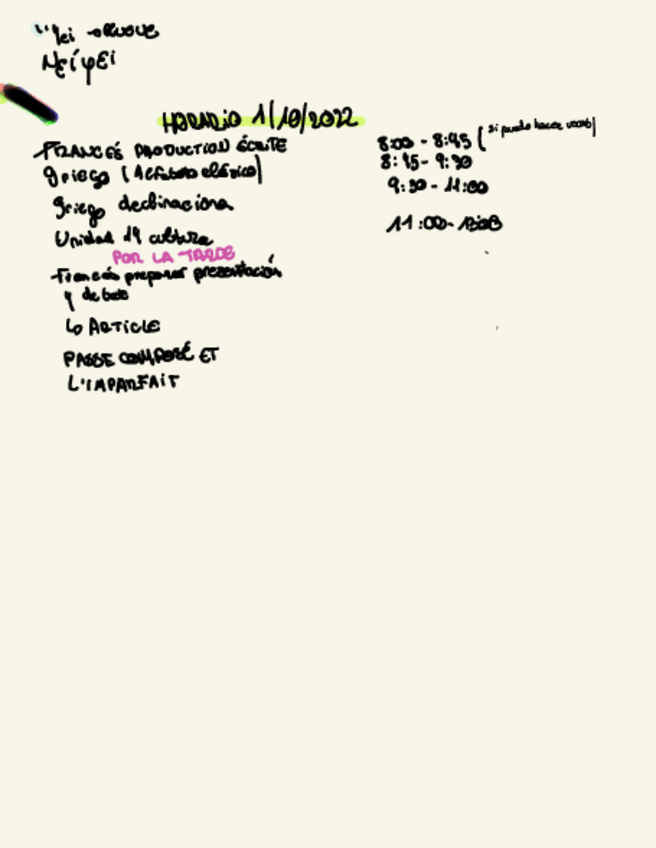 Νείφει
HORARIO 1/10/2022
FRANCÉS PRODUCTION ÉCRITE 8:00 - 8:45 (si puedo hacer vocab)
griego (Alfabeto clásico) 8:45 - 9:30
griego declinaciona 9:30 - 11:00
Unidad 14 cultura 11:00 -
POR LA TARDE
Francés preparar presentación
y debate
↳ ARTICLE
PASSE COMPOSÉ ET
L'IMPARFAIT